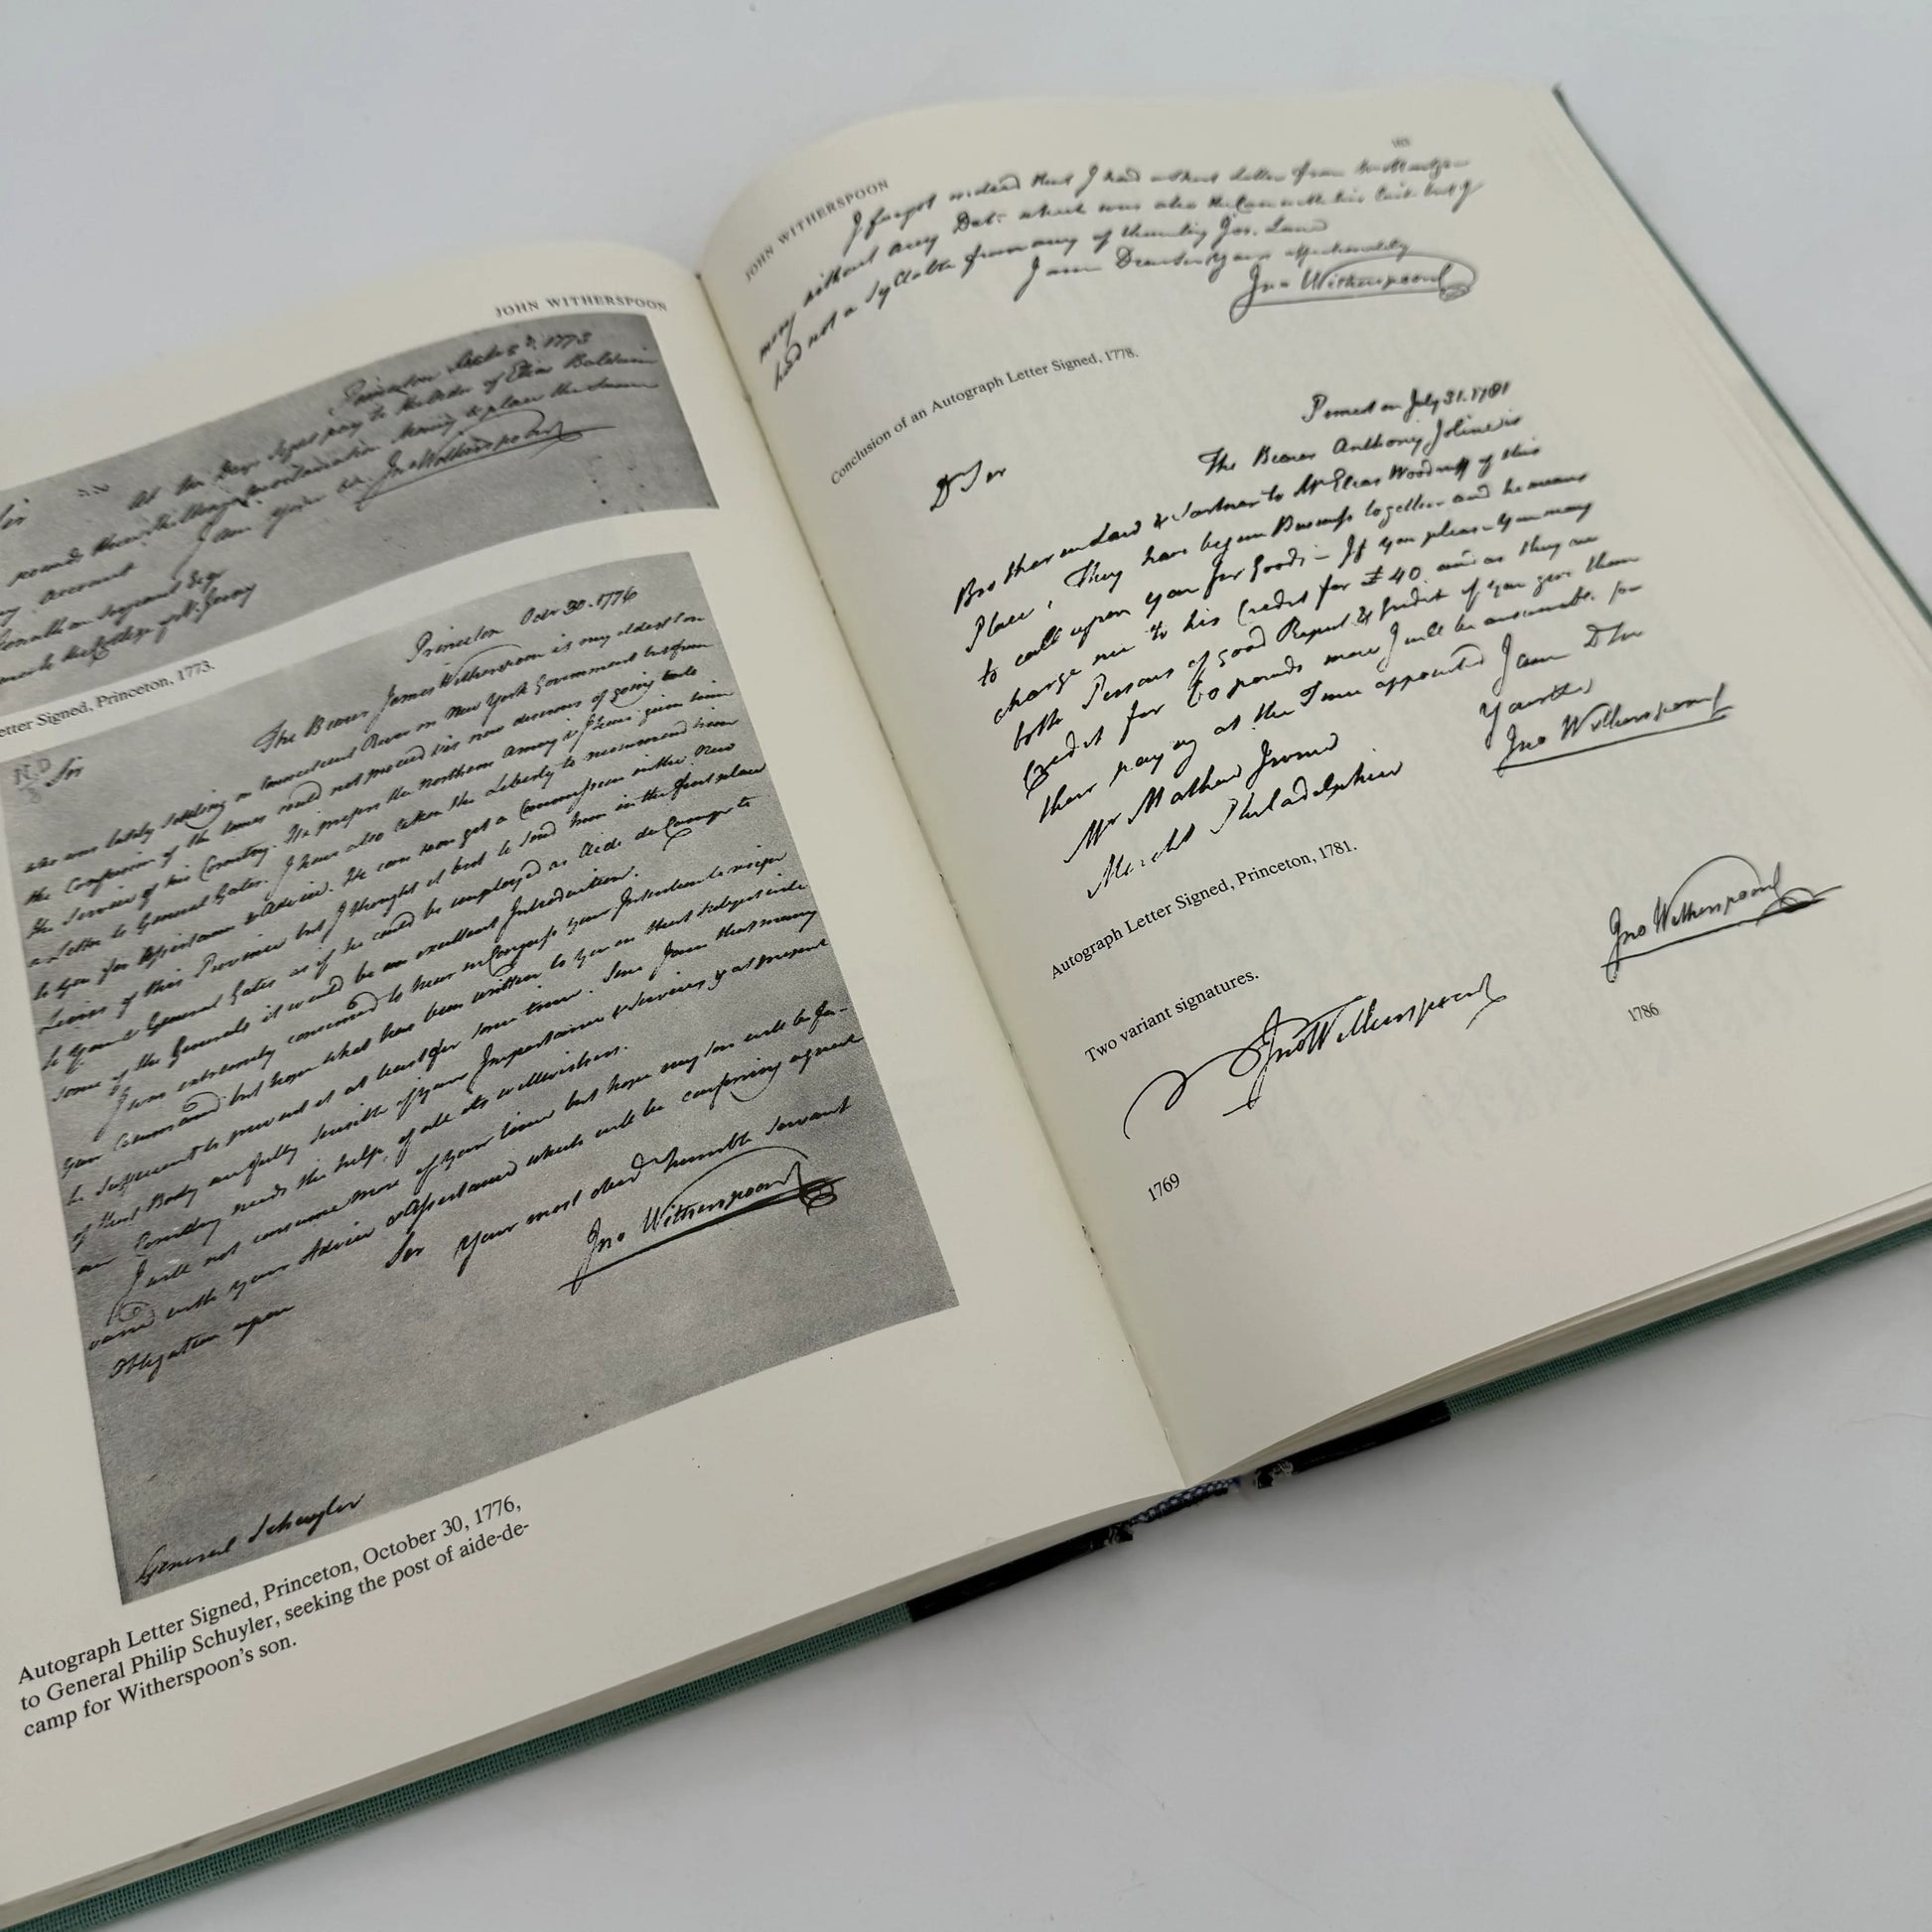 JOHN WITHERSPOON
1773
to the order of Elias Baldwin
pay
place the same
account I am yours &c. Jno Witherspoon
Jonathan Sergeant Esq
College of N. Jersey
etter Signed, Princeton, 1773.
Princeton Octr 30. 1776
Sir
The Bearer James Witherspoon is my eldest son
who was lately settling on Connecticut River in New York Government but from
the Confusion of the times could not proceed & is now desirous of going into
the Service of his Country. He prefers the northern Army & I have given him
a Letter to General Gates. I have also taken the Liberty to recommend him
to you for Assistance & Advice. He can soon get a Commission in the New
Levies of this Province but I thought it best to send him in the first place
to you & General Gates as if he could be employed as Aide de Camp to
some of the Generals it would be an excellent Introduction.
I was extremely concerned to hear in Congress your Intention to resign
your Command but hope what has been written to you on that Subject will
be sufficient to prevent it at least for some time. Sure I am that many
of that Body are fully sensible of your Importance & Services & at present
our Country needs the help of all its wellwishers.
I will not consume more of your time but hope my son will be fa-
vored with your Advice & Assistance which will be conferring a great
Obligation upon
Sir Your most obed humble servant
Jno Witherspoon
General Schuyler
Autograph Letter Signed, Princeton, October 30, 1776,
to General Philip Schuyler, seeking the post of aide-de-
camp for Witherspoon's son.
JOHN WITHERSPOON
I forgot indeed that I had without Letter from
many without any Date which was also the Case with this last but I
had not a Syllable from any of them by
I am Dear Sir yours affectionately
Jno Witherspoon
Conclusion of an Autograph Letter Signed, 1778.
July 31. 1781
Dr Sir
The Bearer Anthony Joline is
Brother in Law & Partner to Mr Elias Woodruff of this
Place. They have begun Business together and he means
to call upon you for Goods – If you please you may
charge me to his Credit for £40 and as they are
both Persons of good Repute & Credit if you give them
Credit for 60 pounds more I will be answerable for
their paying at the Time appointed I am D Sir
Yours &c
Jno Witherspoon
Mr Mathew Irwin
Mercht Philadelphia
Autograph Letter Signed, Princeton, 1781.
Two variant signatures.
Jno Witherspoon
1769
Jno Witherspoon
1786